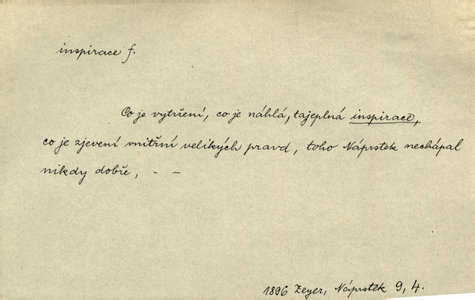 inspirace f.
Co je vytržení, co je náhlá, tajeplná inspirace,
co je zjevení vnitřní velikých pravd, toho Náprstek nechápal
nikdy dobře, – –
1896 Zeyer, Náprstek 9, 4.